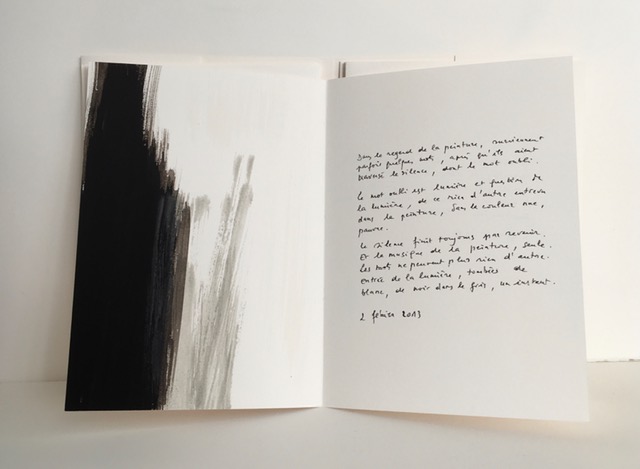 Dans le regard de la peinture, surviennent
parfois quelques mots, après qu'ils aient
traversé le silence, dont le mot oubli.
Le mot oubli est lumière et fusion de
la lumière, de ce rien d'autre entrevu
dans la peinture, dans la couleur une,
pauvre.
Le silence finit toujours par revenir.
Et la musique de la peinture, seule.
Les mots ne peuvent plus rien d'autre.
Entrée de la lumière, tombées de
blanc, de noir dans le gris, un instant.
2 février 2013